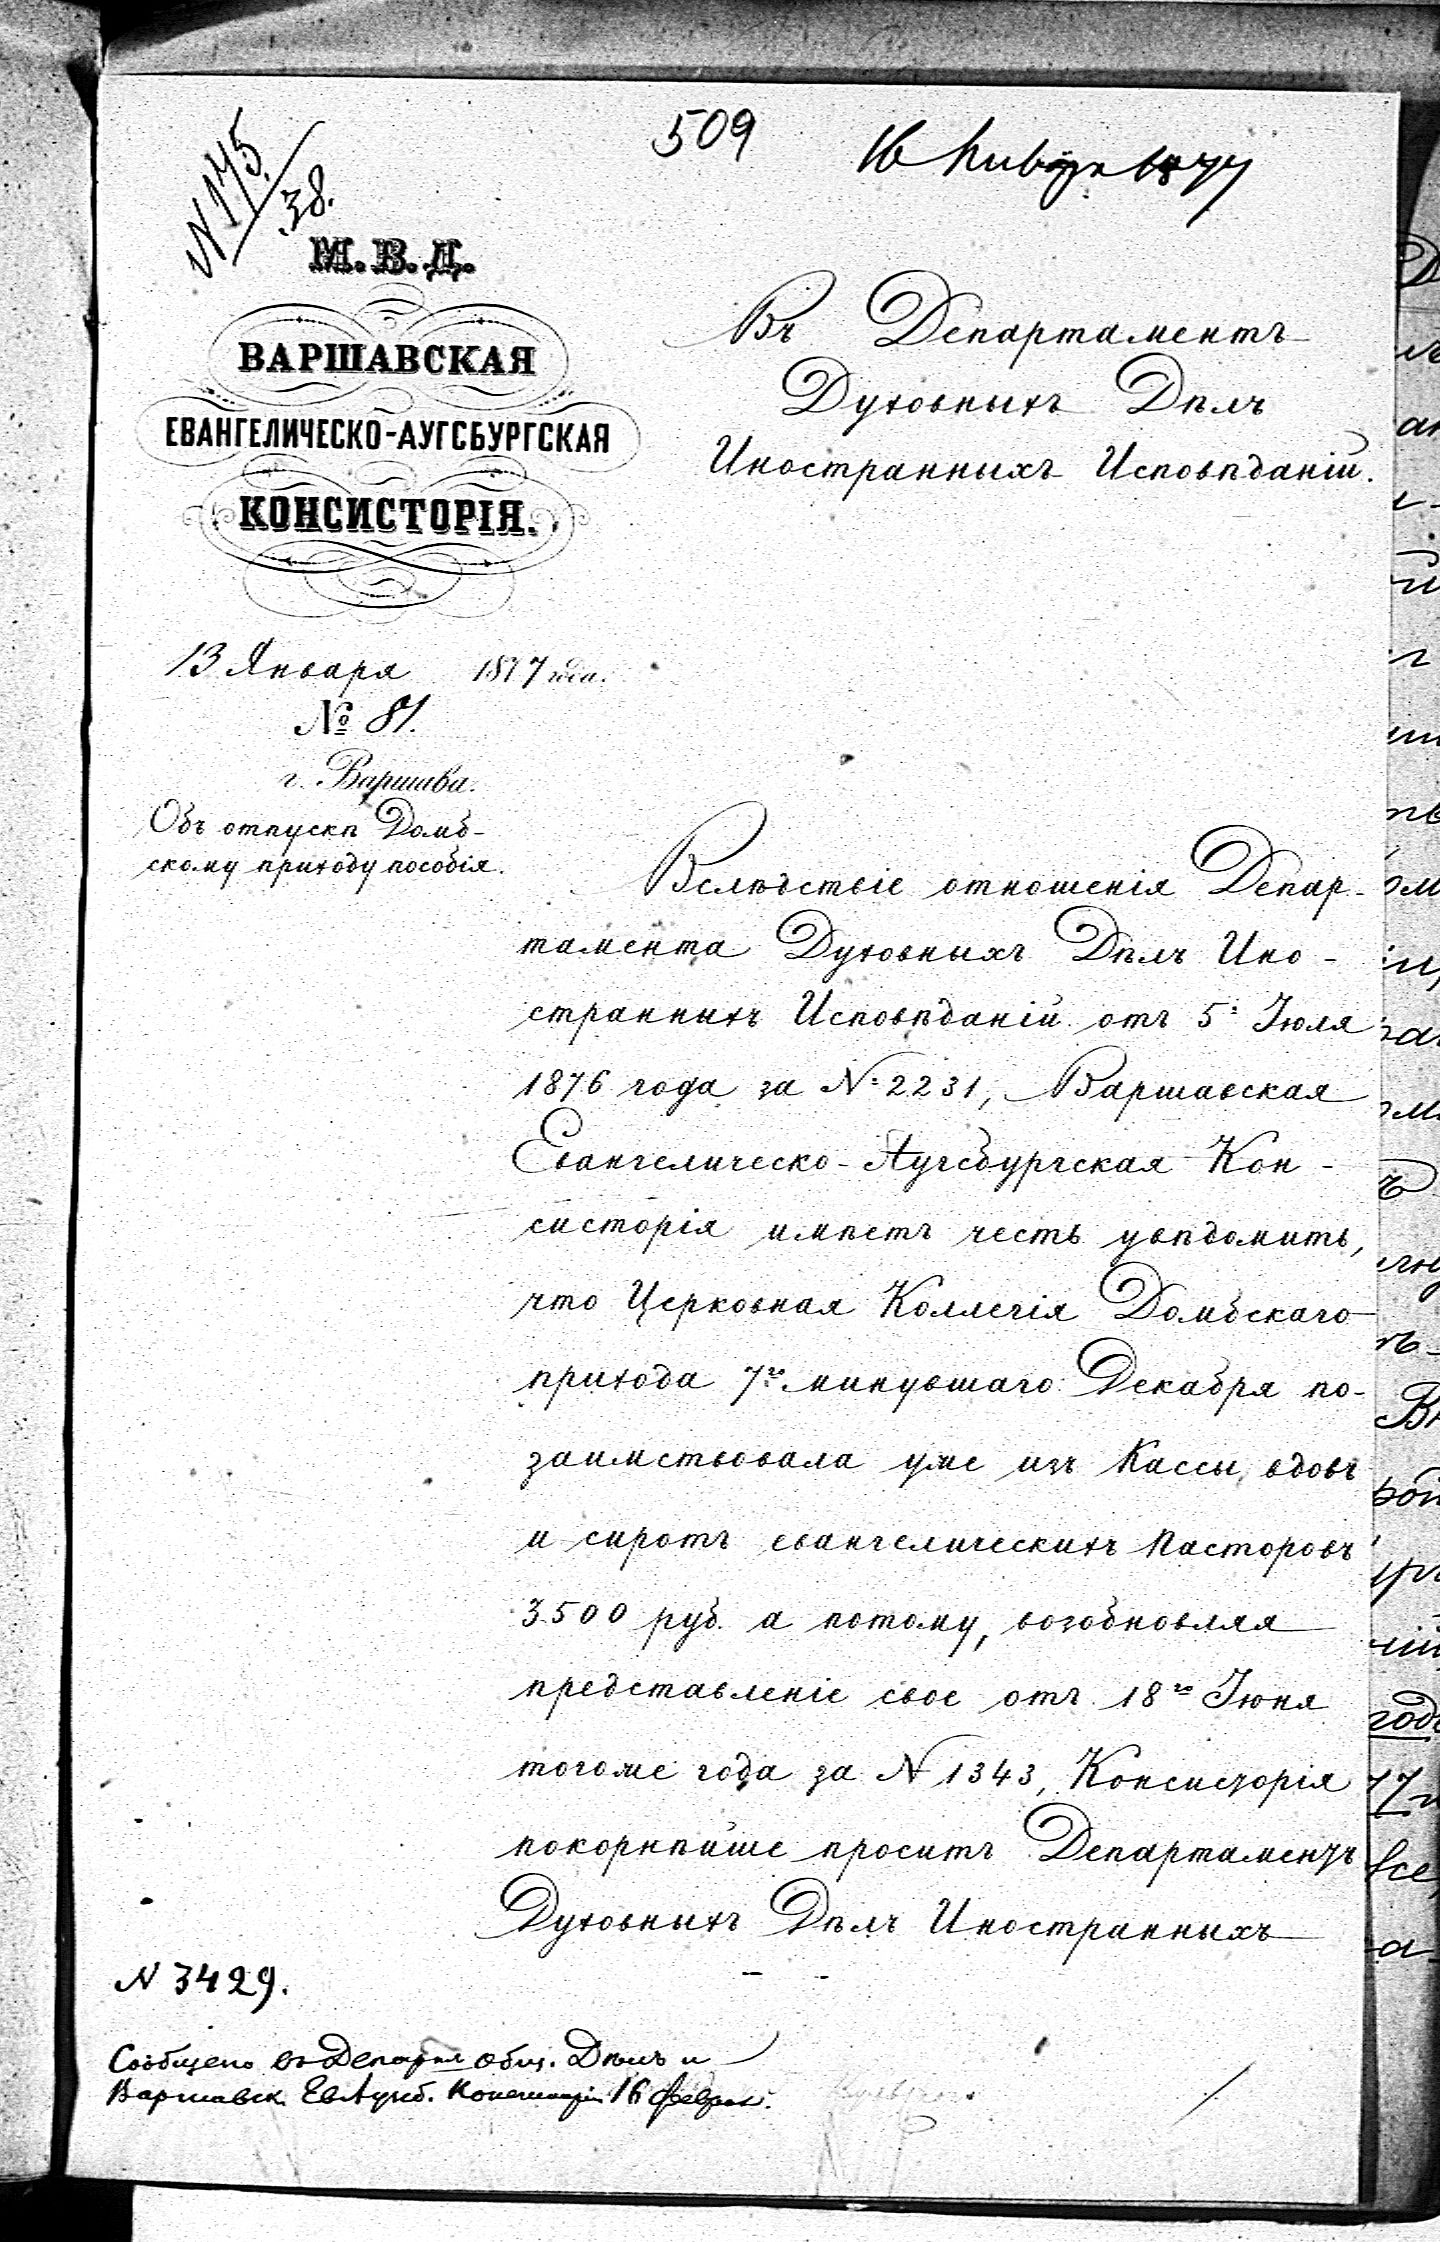 509
16 Января 1877
№ 175/38.
М. В. Д.
ВАРШАВСКАЯ
ЕВАНГЕЛИЧЕСКО-АУГСБУРГСКАЯ
КОНСИСТОРІЯ.
Въ Департаментъ
Духовныхъ Дѣлъ
Иностранныхъ Исповѣданій.
13 Января 1877 года.
№ 81.
г. Варшава.
Объ отпускѣ Домб-
скому приходу пособія.
Вслѣдствіе отношенія Депар-
тамента Духовныхъ Дѣлъ Ино-
странныхъ Исповѣданій отъ 5 Іюля
1876 года за № 2231, Варшавская
Евангелическо-Аугсбургская Кон-
систорія имѣетъ честь увѣдомить,
что Церковная Коллегія Домбскаго
прихода 7го минувшаго Декабря по-
заимствовала уже изъ Кассы вдовъ
и сиротъ евангелическихъ Пасторовъ
3500 руб. а потому, возобновляя
представленіе свое отъ 18го Іюня
тогоже года за № 1343, Консисторія
покорнѣйше проситъ Департаментъ
Духовныхъ Дѣлъ Иностранныхъ
№ 3429.
Сообщено въ Департ общ. Дѣлъ и
Варшавск. ЕвАугсб. Консисторіи 16 Феврал.